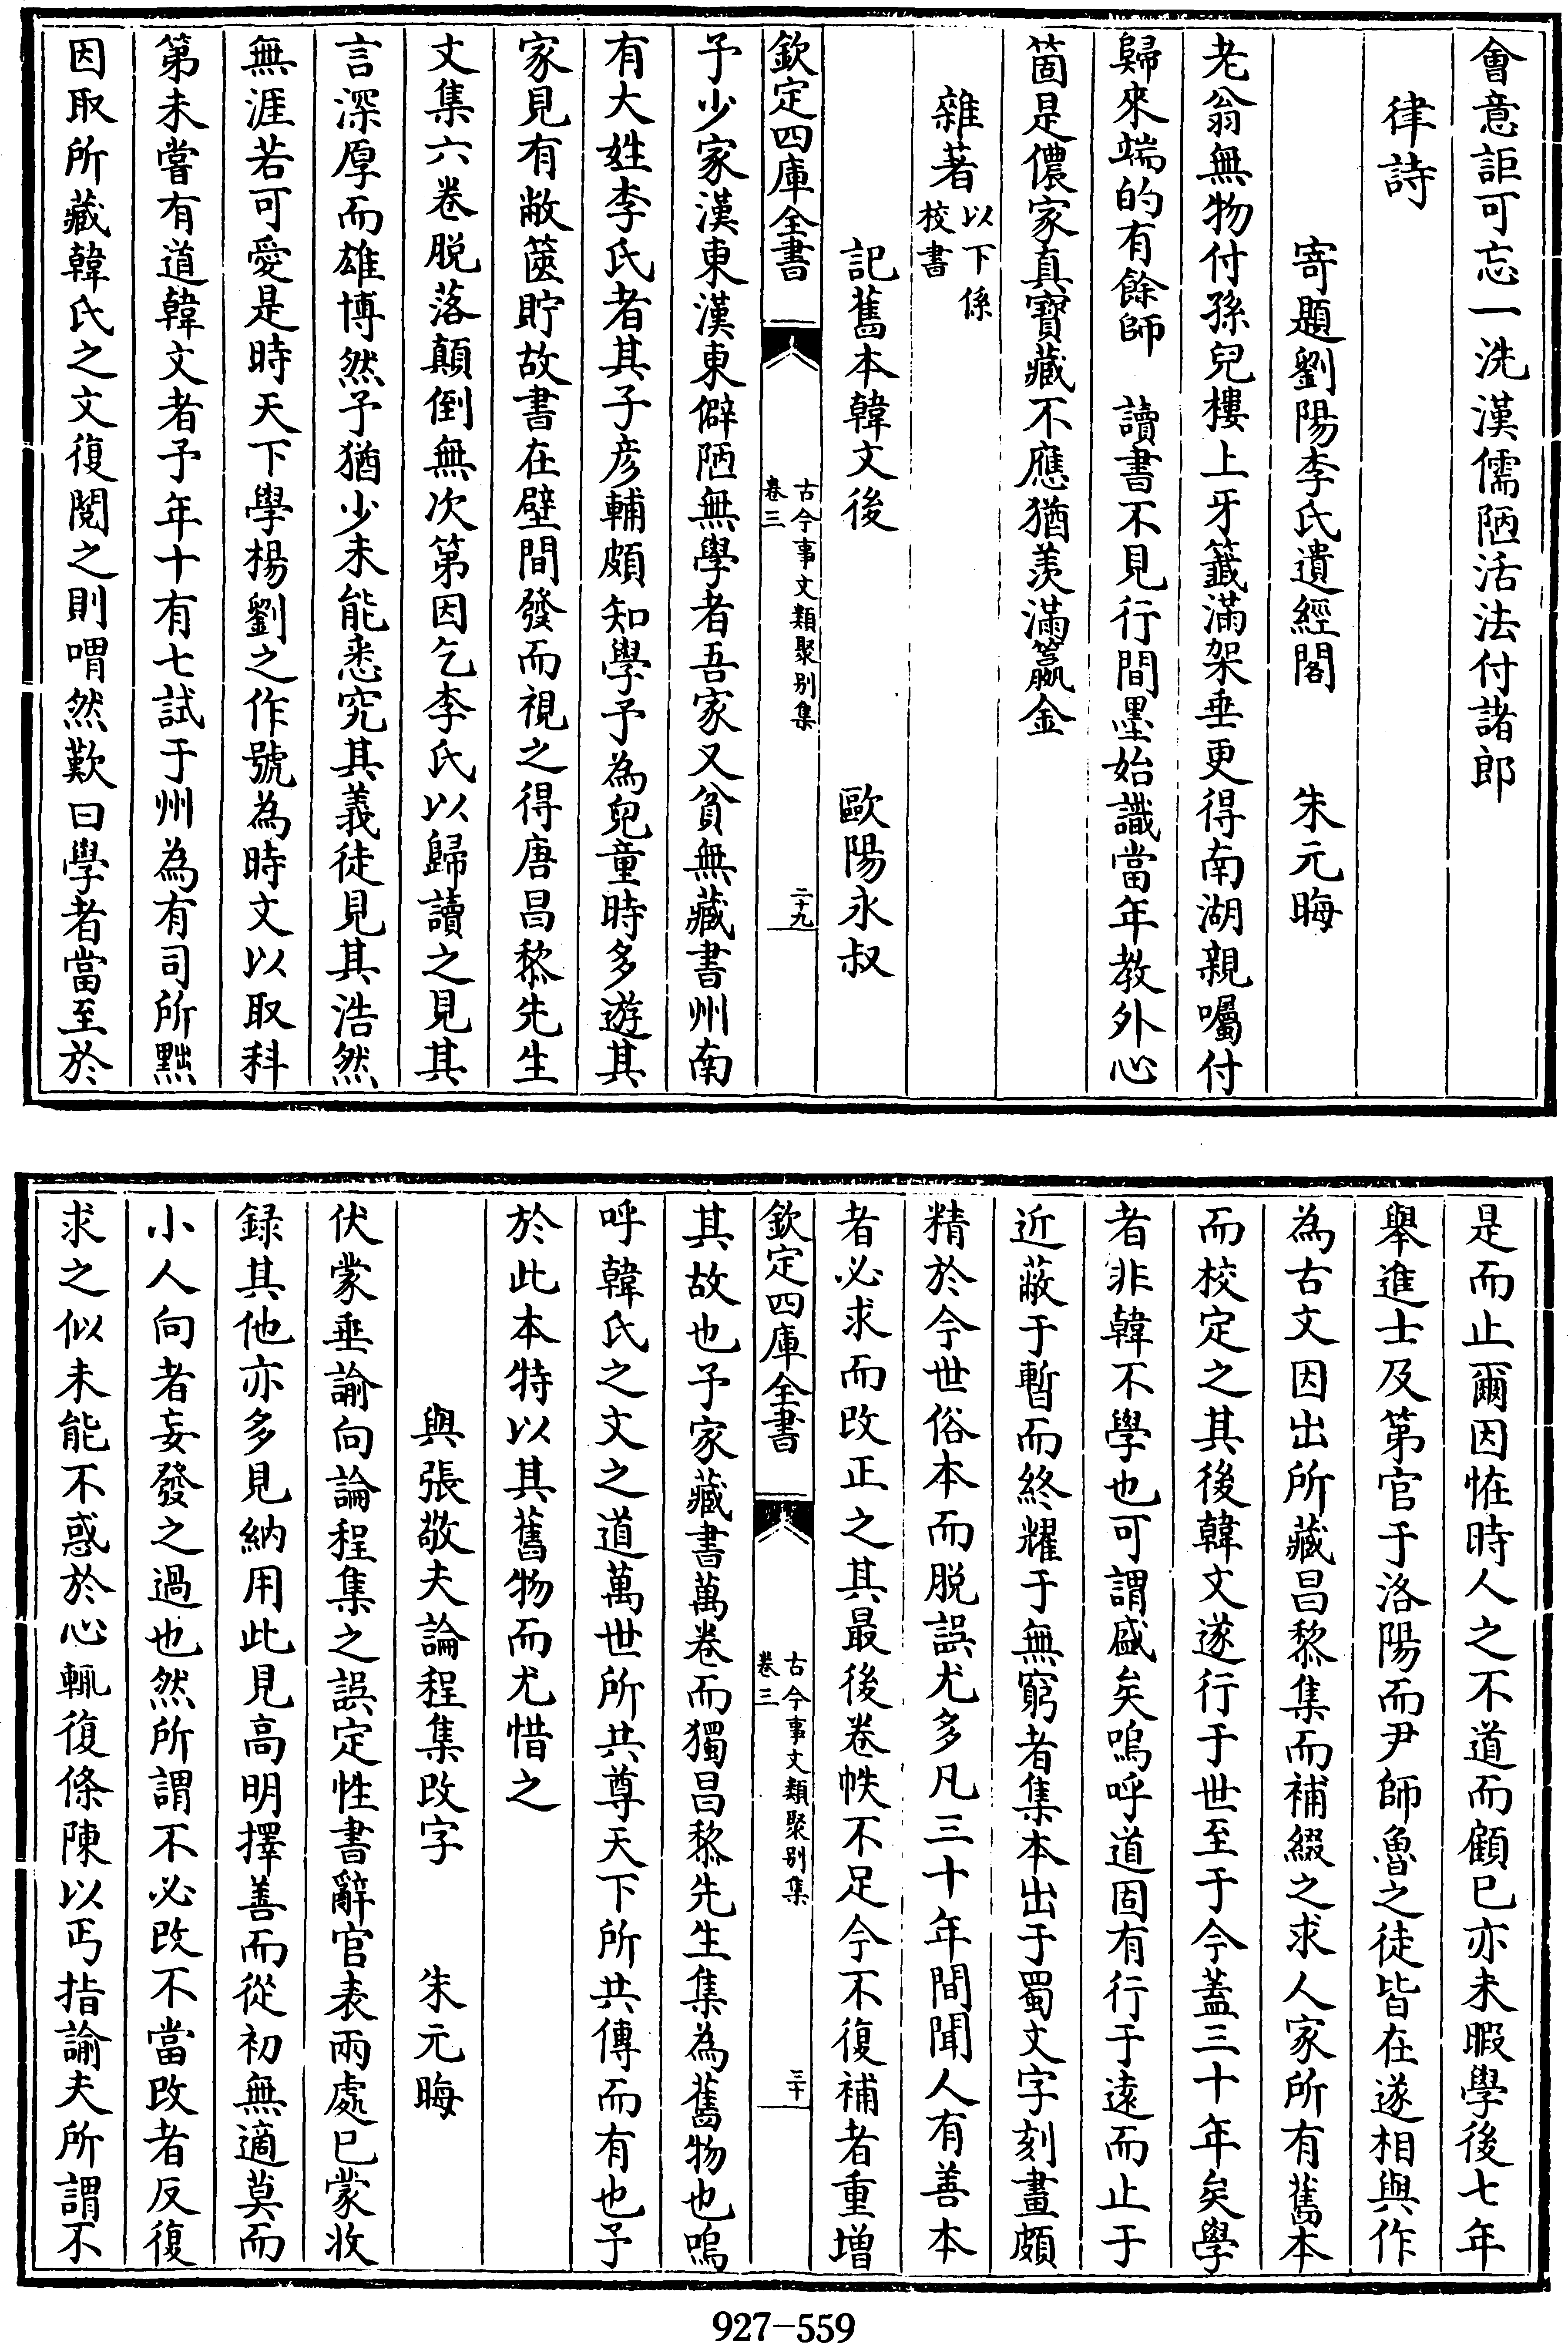 會意詎可忘一洗漢儒陋活法付諸郎
律詩
寄題劉陽李氏遺經閣　朱元晦
老翁無物付孫兒樓上牙籤滿架垂更得南湖親囑付
歸來端的有餘師　讀書不見行間墨始識當年教外心
箇是儂家真寶藏不應猶羨滿籯金
雜著以下係校書
記舊本韓文後　歐陽永叔
欽定四庫全書　古今事文類聚别集卷三　二十九
予少家漢東漢東僻陋無學者吾家又貧無藏書州南
有大姓李氏者其子彦輔頗知學予為兒童時多遊其
家見有敝篋貯故書在壁間發而視之得唐昌黎先生
文集六卷脱落顛倒無次第因乞李氏以歸讀之見其
言深厚而雄博然予猶少未能悉究其義徒見其浩然
無涯若可愛是時天下學楊劉之作號為時文以取科
第未嘗有道韓文者予年十有七試于州為有司所黜
因取所藏韓氏之文復閱之則喟然歎曰學者當至於
是而止爾因恠時人之不道而顧已亦未暇學後七年
舉進士及第官于洛陽而尹師魯之徒皆在遂相與作
為古文因出所藏昌黎集而補綴之求人家所有舊本
而校定之其後韓文遂行于世至于今蓋三十年矣學
者非韓不學也可謂盛矣嗚呼道固有行于遠而止于
近蔽于暫而終耀于無窮者集本出于蜀文字刻畫頗
精於今世俗本而脱誤尤多凡三十年間聞人有善本
者必求而改正之其最後卷帙不足今不復補者重增
欽定四庫全書　古今事文類聚别集卷三　三十
其故也予家藏書萬卷而獨昌黎先生集為舊物也嗚
呼韓氏之文之道萬世所共尊天下所共傳而有也予
於此本特以其舊物而尤惜之
與張敬夫論程集改字　朱元晦
伏蒙垂諭向論程集之誤定性書辭官表兩處已蒙收
録其他亦多見納用此見高明擇善而從初無適莫而
小人向者妄發之過也然所謂不必改不當改者反復
求之似未能不惑於心輒復條陳以丐指諭夫所謂不
927-559